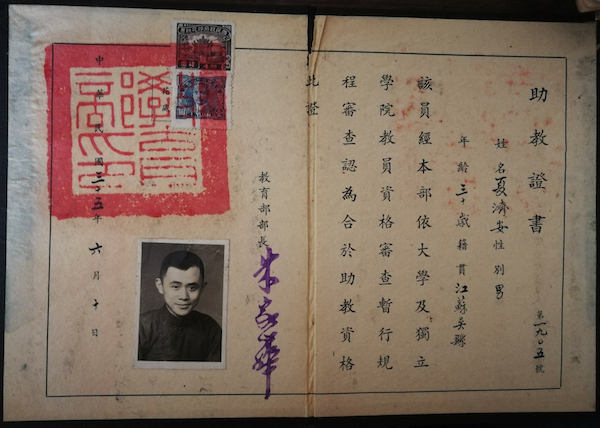 助教證書
第一九〇五號
姓名夏濟安性別男
年齡三十歲籍貫江蘇吳縣
該員經本部依大學及獨立
學院教員資格審查暫行規
程審查認為合於助教資格
此證
教育部部長 朱家驊
中華民國三十五年六月十日